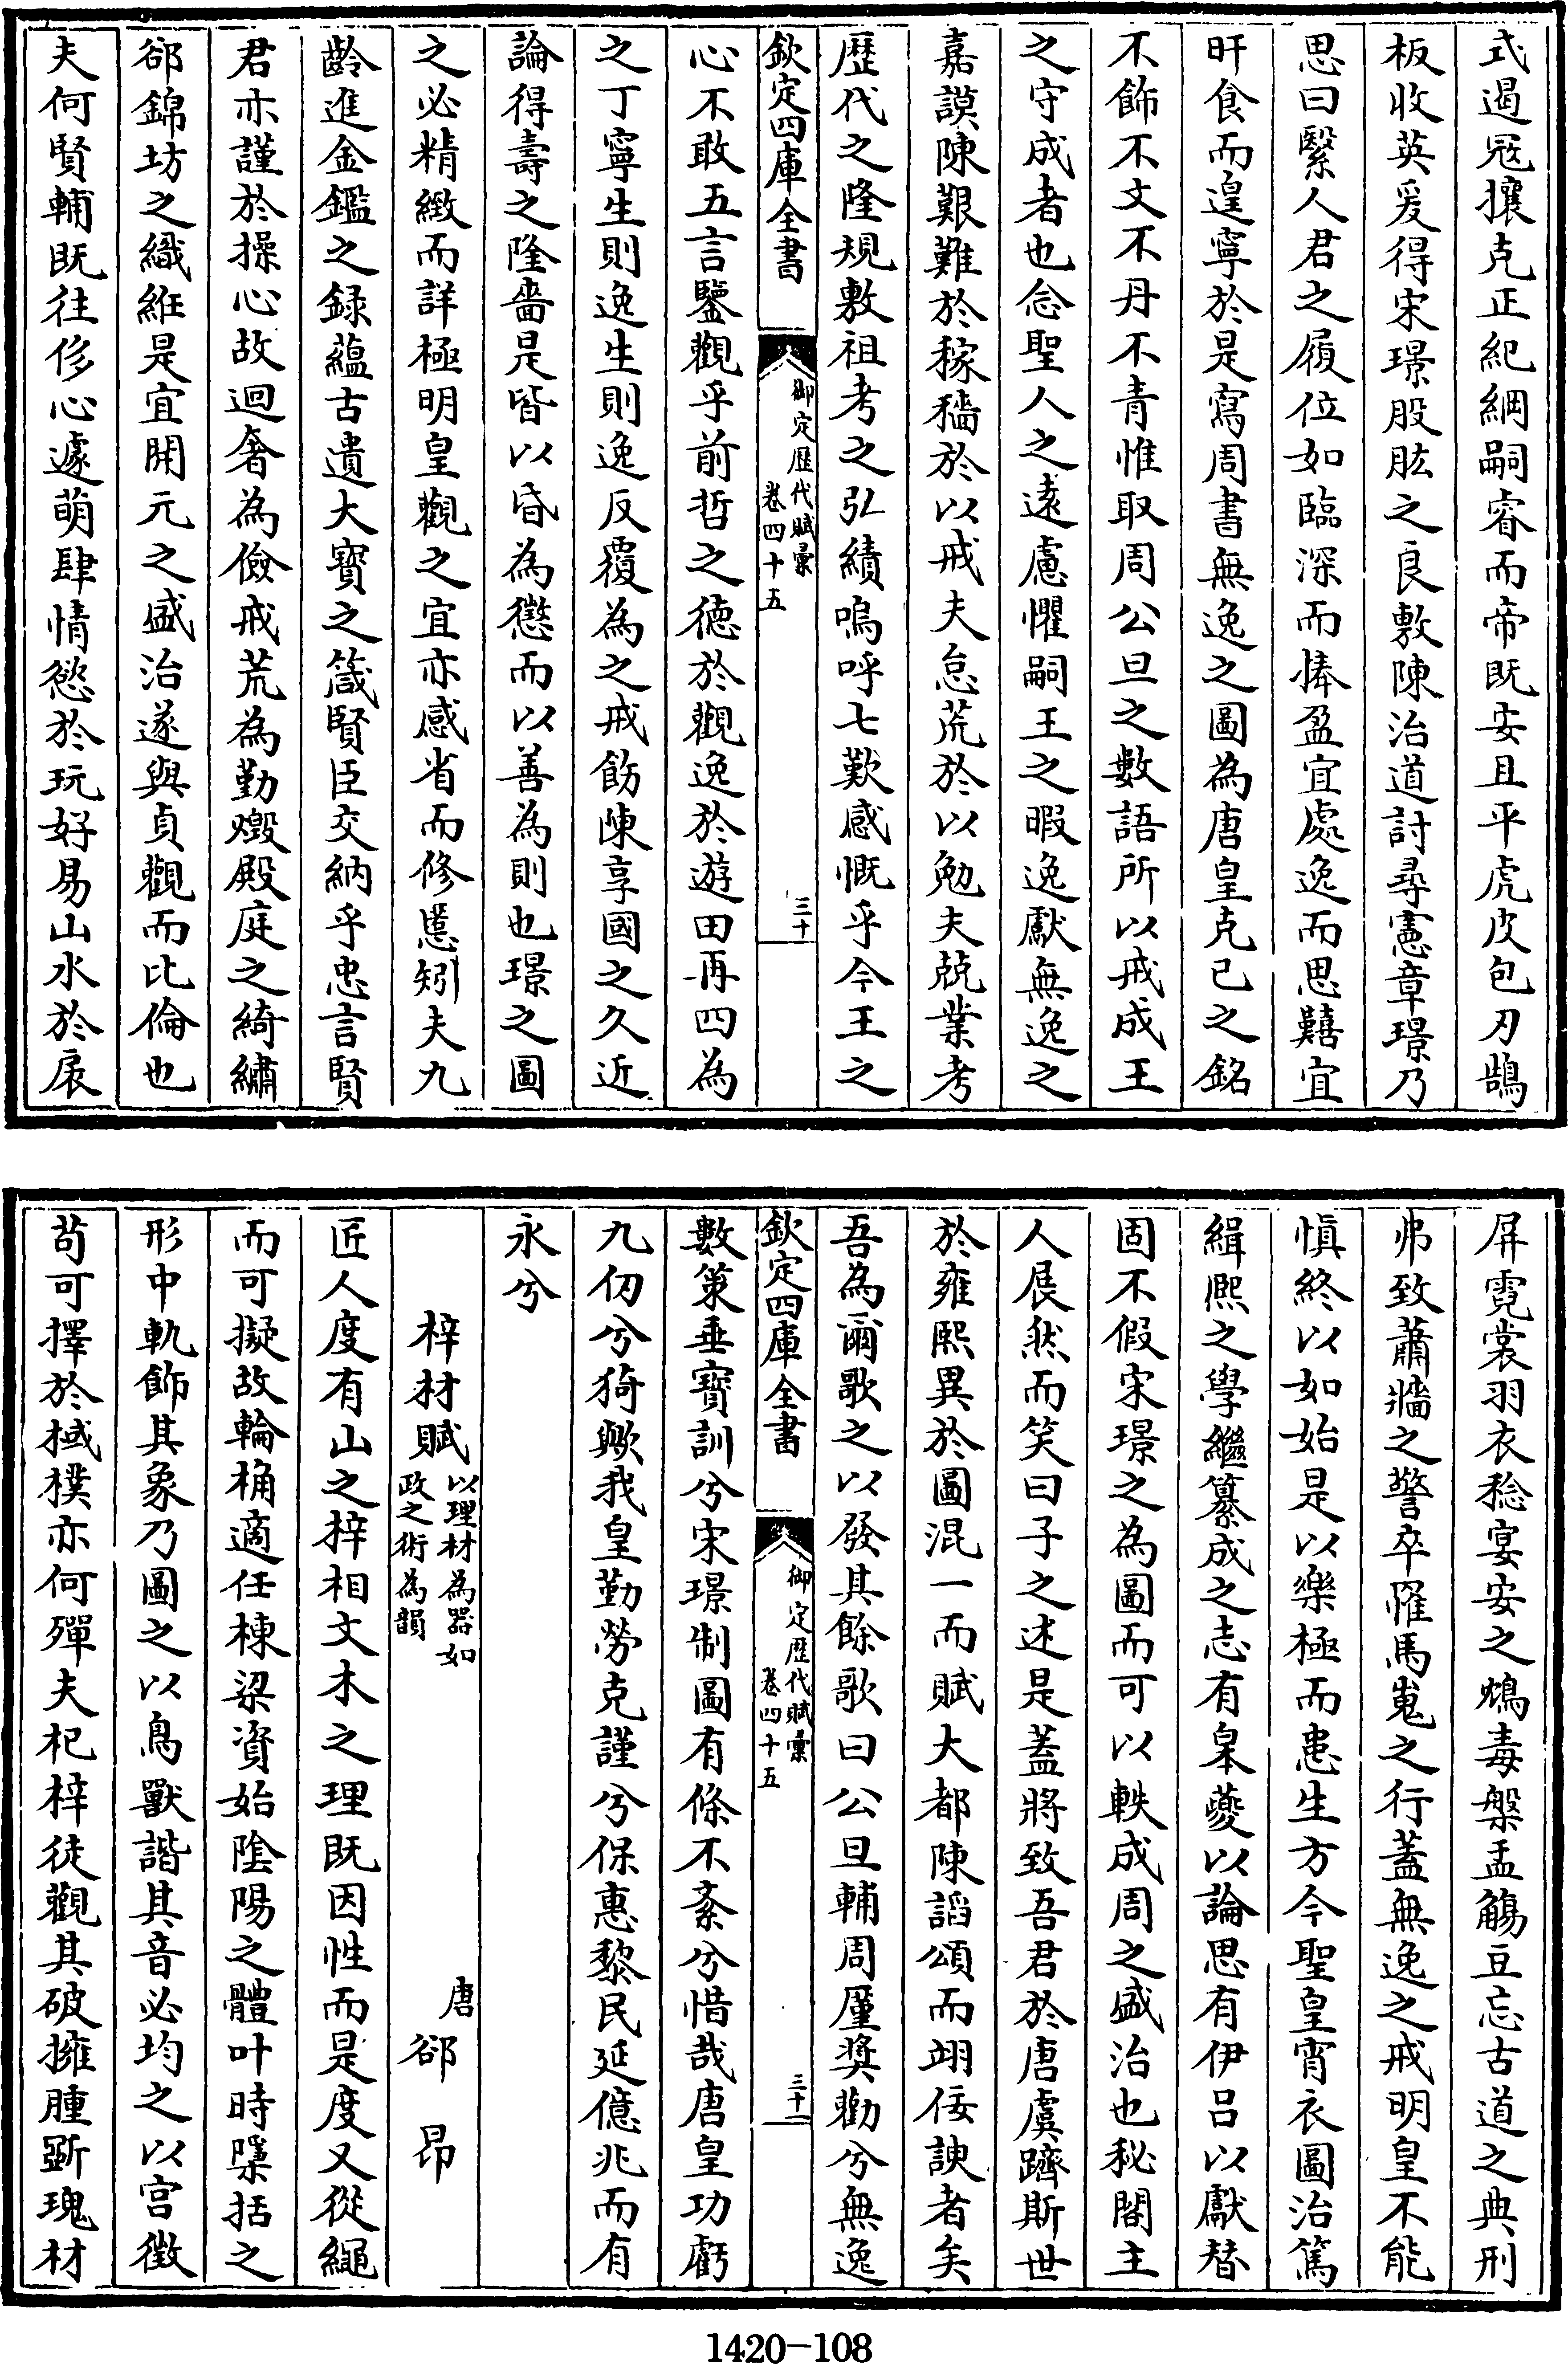 式遏冦攘克正紀綱嗣睿而帝既安且平虎皮包刃鵠
板收英爰得宋璟股肱之良敷陳治道討尋憲章璟乃
思曰繄人君之履位如臨深而捧盈宜處逸而思囏宜
旰食而遑寧於是寫周書無逸之圖為唐皇克己之銘
不飾不文不丹不青惟取周公旦之數語所以戒成王
之守成者也念聖人之遠慮懼嗣王之暇逸獻無逸之
嘉謨陳艱難於稼穡於以戒夫怠荒於以勉夫兢業考
歴代之隆規敷祖考之弘績嗚呼七歎感慨乎今王之
欽定四庫全書
御定歴代賦彙
卷四十五
三十
心不敢五言鑒觀乎前哲之德於觀逸於遊田再四為
之丁寧生則逸生則逸反覆為之戒飭陳享國之久近
論得壽之隆嗇是皆以昏為懲而以善為則也璟之圖
之必精緻而詳極明皇觀之宜亦感省而修慝矧夫九
齡進金鑑之録蘊古遺大寶之箴賢臣交納乎忠言賢
君亦謹於操心故迴奢為儉戒荒為勤燬殿庭之綺繡
郤錦坊之織絍是宜開元之盛治遂與貞觀而比倫也
夫何賢輔既往侈心遽萌肆情慾於玩好易山水於扆
屏霓裳羽衣稔宴安之鴆毒槃盂觴豆忘古道之典刑
弗致蕭牆之警卒罹馬嵬之行蓋無逸之戒明皇不能
慎終以如始是以樂極而患生方今聖皇宵衣圖治篤
緝熈之學繼纂成之志有臯夔以論思有伊吕以獻替
固不假宋璟之為圖而可以軼成周之盛治也秘閣主
人辰然而笑曰子之述是蓋將致吾君於唐虞躋斯世
於雍熙異於圖混一而賦大都陳謟頌而翊佞諛者矣
吾為爾歌之以發其餘歌曰公旦輔周厪奬勸兮無逸
欽定四庫全書
御定歴代賦彙
卷四十五
三十一
數策垂寶訓兮宋璟制圖有條不紊兮惜哉唐皇功虧
九仞兮猗歟我皇勤勞克謹兮保惠黎民延億兆而有
永兮
梓材賦以理材為器如政之術為韻
唐 郤昂
匠人度有山之梓相文木之理既因性而是度又從繩
而可擬故輪桷適任棟梁資始陰陽之體叶時隱括之
形中軌飾其象乃圖之以鳥獸諧其音必均之以宫徴
苟可擇於棫樸亦何殫夫杞梓徒觀其破擁腫斲瑰材
1420-108